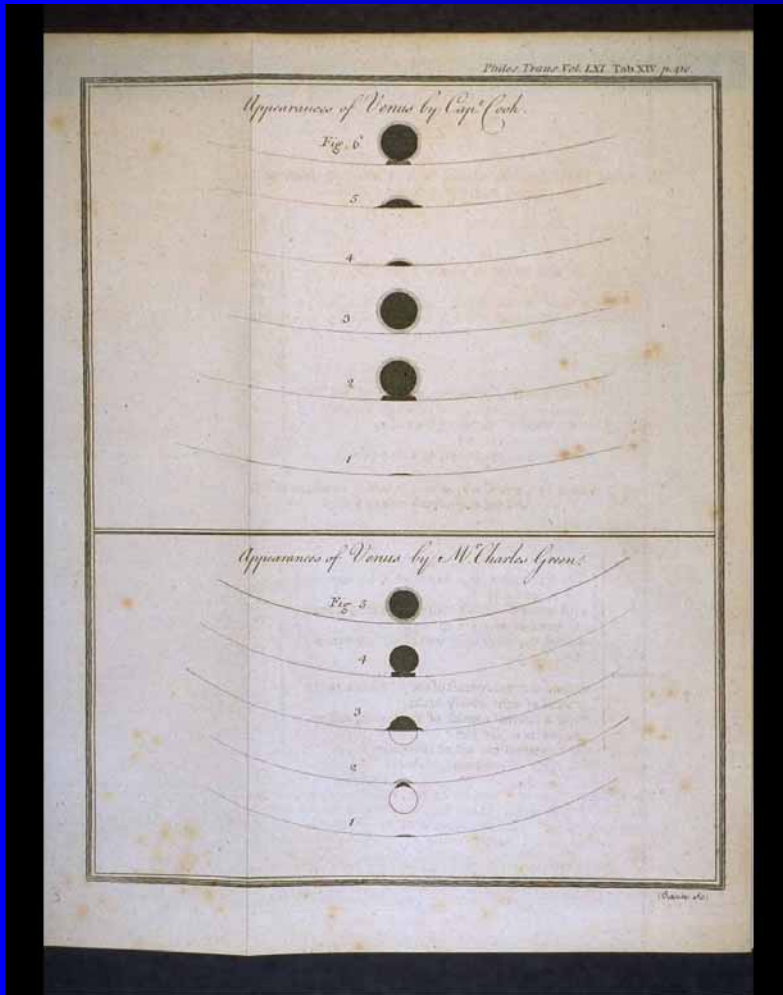 Philos. Trans. Vol. LXI. Tab. XIV. p. 410.
Appearances of Venus by Capt. Cook.
Fig. 6
5
4
3
2
1
Appearances of Venus by Mr. Charles Green.
Fig 5
4
3
2
1